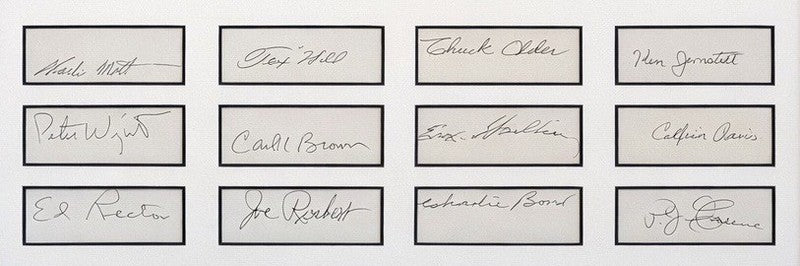 Charlie Mott
"Tex" Hill
Chuck Older
Ken Jernstedt
Peter Wright
Carl K Brown
Erik Shilling
Davis
Ed Rector
Joe Rosbert
Charlie Bond
P.J. Greene